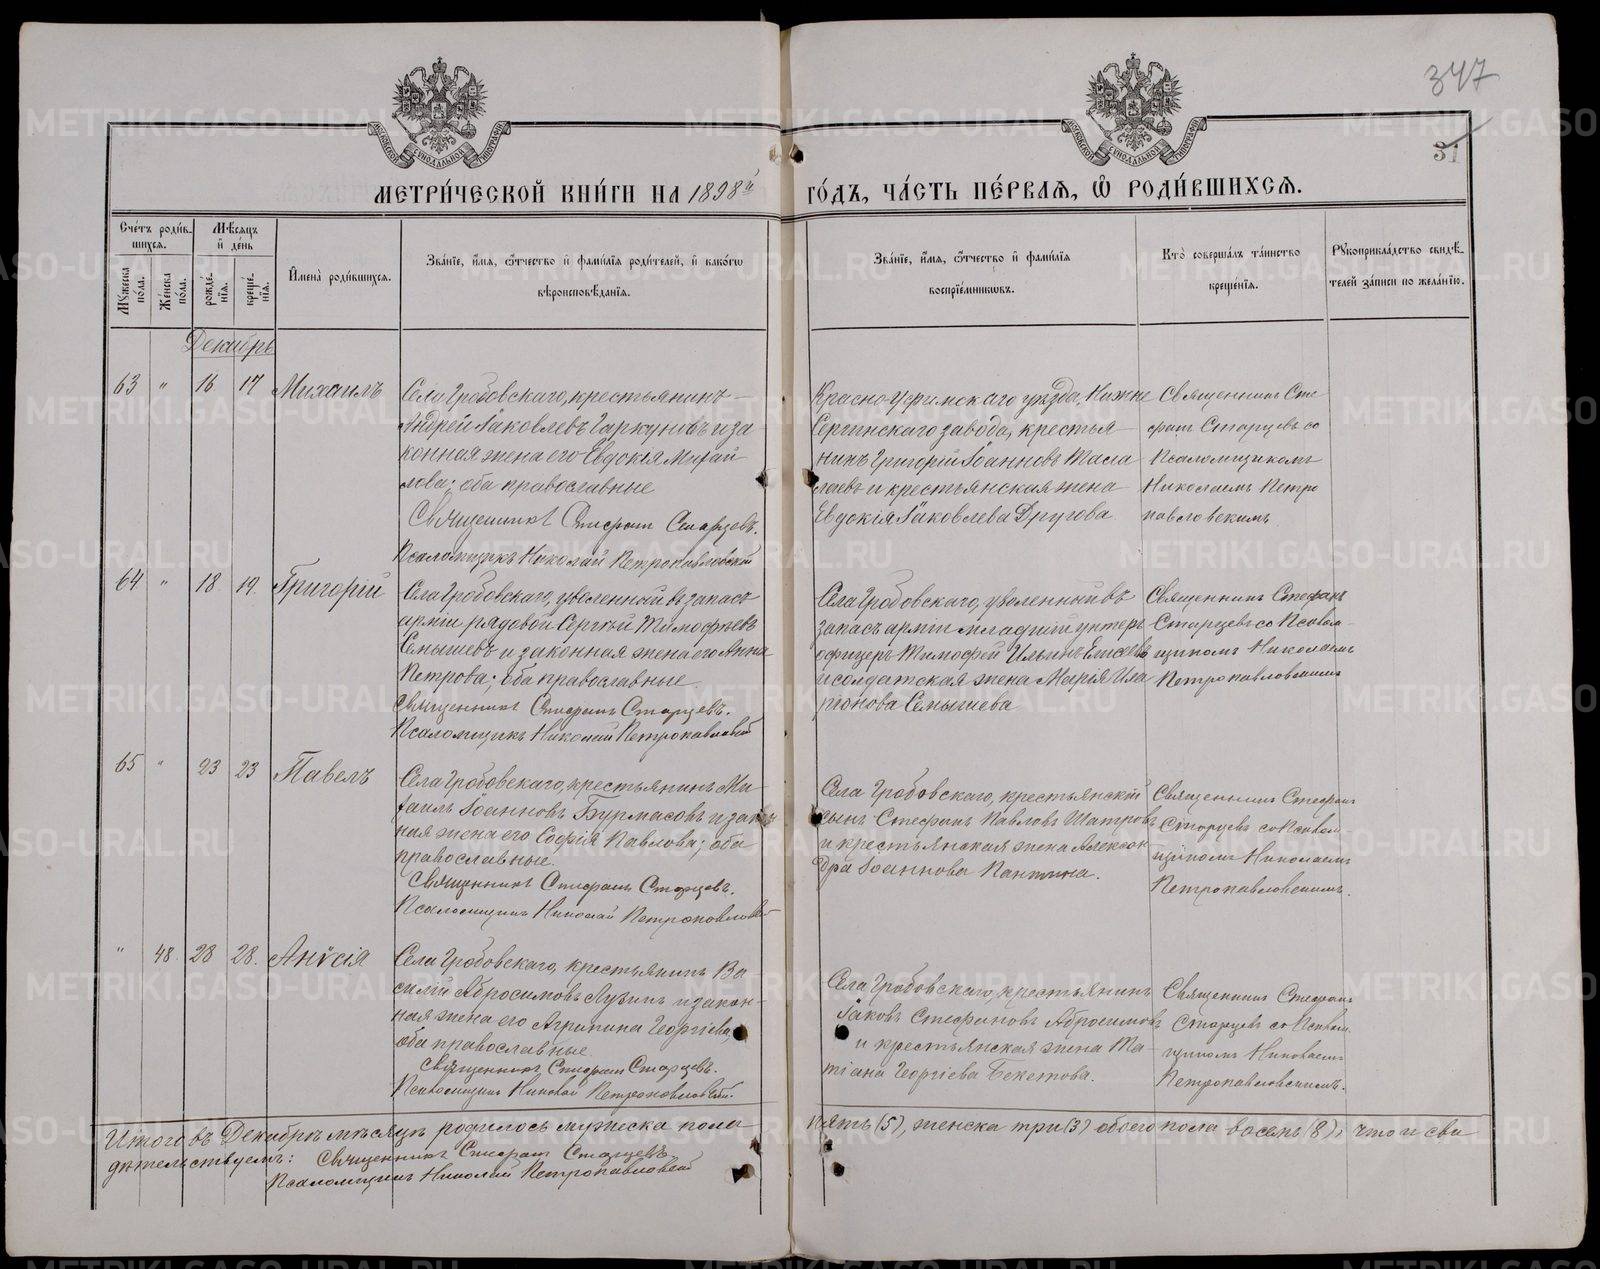 347
31
МЕТРИ́ЧЕСКОЙ КНИ́ГИ НА 1898й ГО́ДЪ, ЧА́СТЬ ПЕ́РВАѦ, Ѽ РОДИ́ВШИХСѦ.
Сче́тъ роди́в-
шихсѧ.
Мужеска по́ла.
Же́нска по́ла.
Мѣ́сѧцъ
и҆ де́нь
рожде́-
нїѧ.
креще́-
нїѧ.
И҆мена̀ роди́вшихсѧ.
Зва́нїе, и҆́мѧ, ѻ҆́тчество и҆ фами́лїѧ роди́телей, и҆ како́гѡ
вѣроисповѣ́данїѧ.
Зва́нїе, и҆́мѧ, ѻ҆́тчество и҆ фами́лїѧ
воспрїе́мникѡвъ.
Кто̀ соверша́лъ та́инство
креще́нїѧ.
Рꙋкоприкла́дство свидѣ́-
телей за́писи по жела́нїю.
Декабрь
63 " 16 17 Михаилъ
Села Гробовскаго, крестьянинъ
Андрей Іаковлевъ Гаркуновъ и за
конная жена его Евдокія Михай
лова; оба православные
Священникъ Стефанъ Старцевъ.
Псаломщикъ Николай Петропавловский
Красно-Уфимского уѣзда, Нижне
Сергинскаго завода, крестья
нинъ Григорій Іоанновъ
и крестьянская жена
Евдокія Іаковлева Другова
Священникъ Сте
фанъ Старцевъ со
Псаломщикомъ
Николаемъ Петро
павловскимъ
64 " 18 19. Григорій
Села Гробовскаго, уволенный въ запасъ
арміи рядовой Сергѣй Тимофѣевъ
Семышевъ и законная жена его Анна
Петрова; оба православные.
Священникъ Стефанъ Старцевъ.
Псаломщикъ Николай Петропавловский
Села Гробовскаго, уволенный въ
запасъ арміи младший унтеръ
офицеръ Тимофей Ильинъ Елисеевъ
и солдатская жена Марія Ила
ріонова Семышева
Священникъ Стефанъ
Старцевъ со Псалом-
щикомъ Николаемъ
Петропавловскимъ
65 " 23 23 Павелъ
Села Гробовскаго, крестьянинъ Ми
хаилъ Іоанновъ Бурмасовъ и закон
ная жена его Софія Павлова; оба
православные.
Священникъ Стефанъ Старцевъ.
Псаломщикъ Николай Петропавловский
Села Гробовскаго, крестьянскій
сынъ Стефанъ Павловъ Шатровъ
и крестьянская жена Алексан-
дра Іоаннова Пантина.
Священникъ Стефанъ
Старцевъ со Псалом
щикомъ Николаемъ
Петропавловскимъ.
" 48. 28 28. Анѵсія
Села Гробовскаго, крестьянинъ Ва
силій Абросимовъ Лузинъ и закон-
ная жена его Агрипина Георгіева,
оба православные.
Священникъ Стефанъ Старцевъ.
Псаломщикъ Николай Петропавловский.
Села Гробовскаго, крестьянинъ
Іаковъ Стефановъ Абросимовъ
и крестьянская жена Та-
тіана Георгіева Бекетова.
Священникъ Стефанъ
Старцевъ со Псалом
щикомъ Николаемъ
Петропавловскимъ.
Итого въ Декабрѣ мѣсяцѣ родилось мужеска пола пять (5), женска три (3) обоего пола восемь (8); что и сви
дѣтельствуемъ: Священникъ Стефанъ Старцевъ
Псаломщикъ Николай Петропавловский